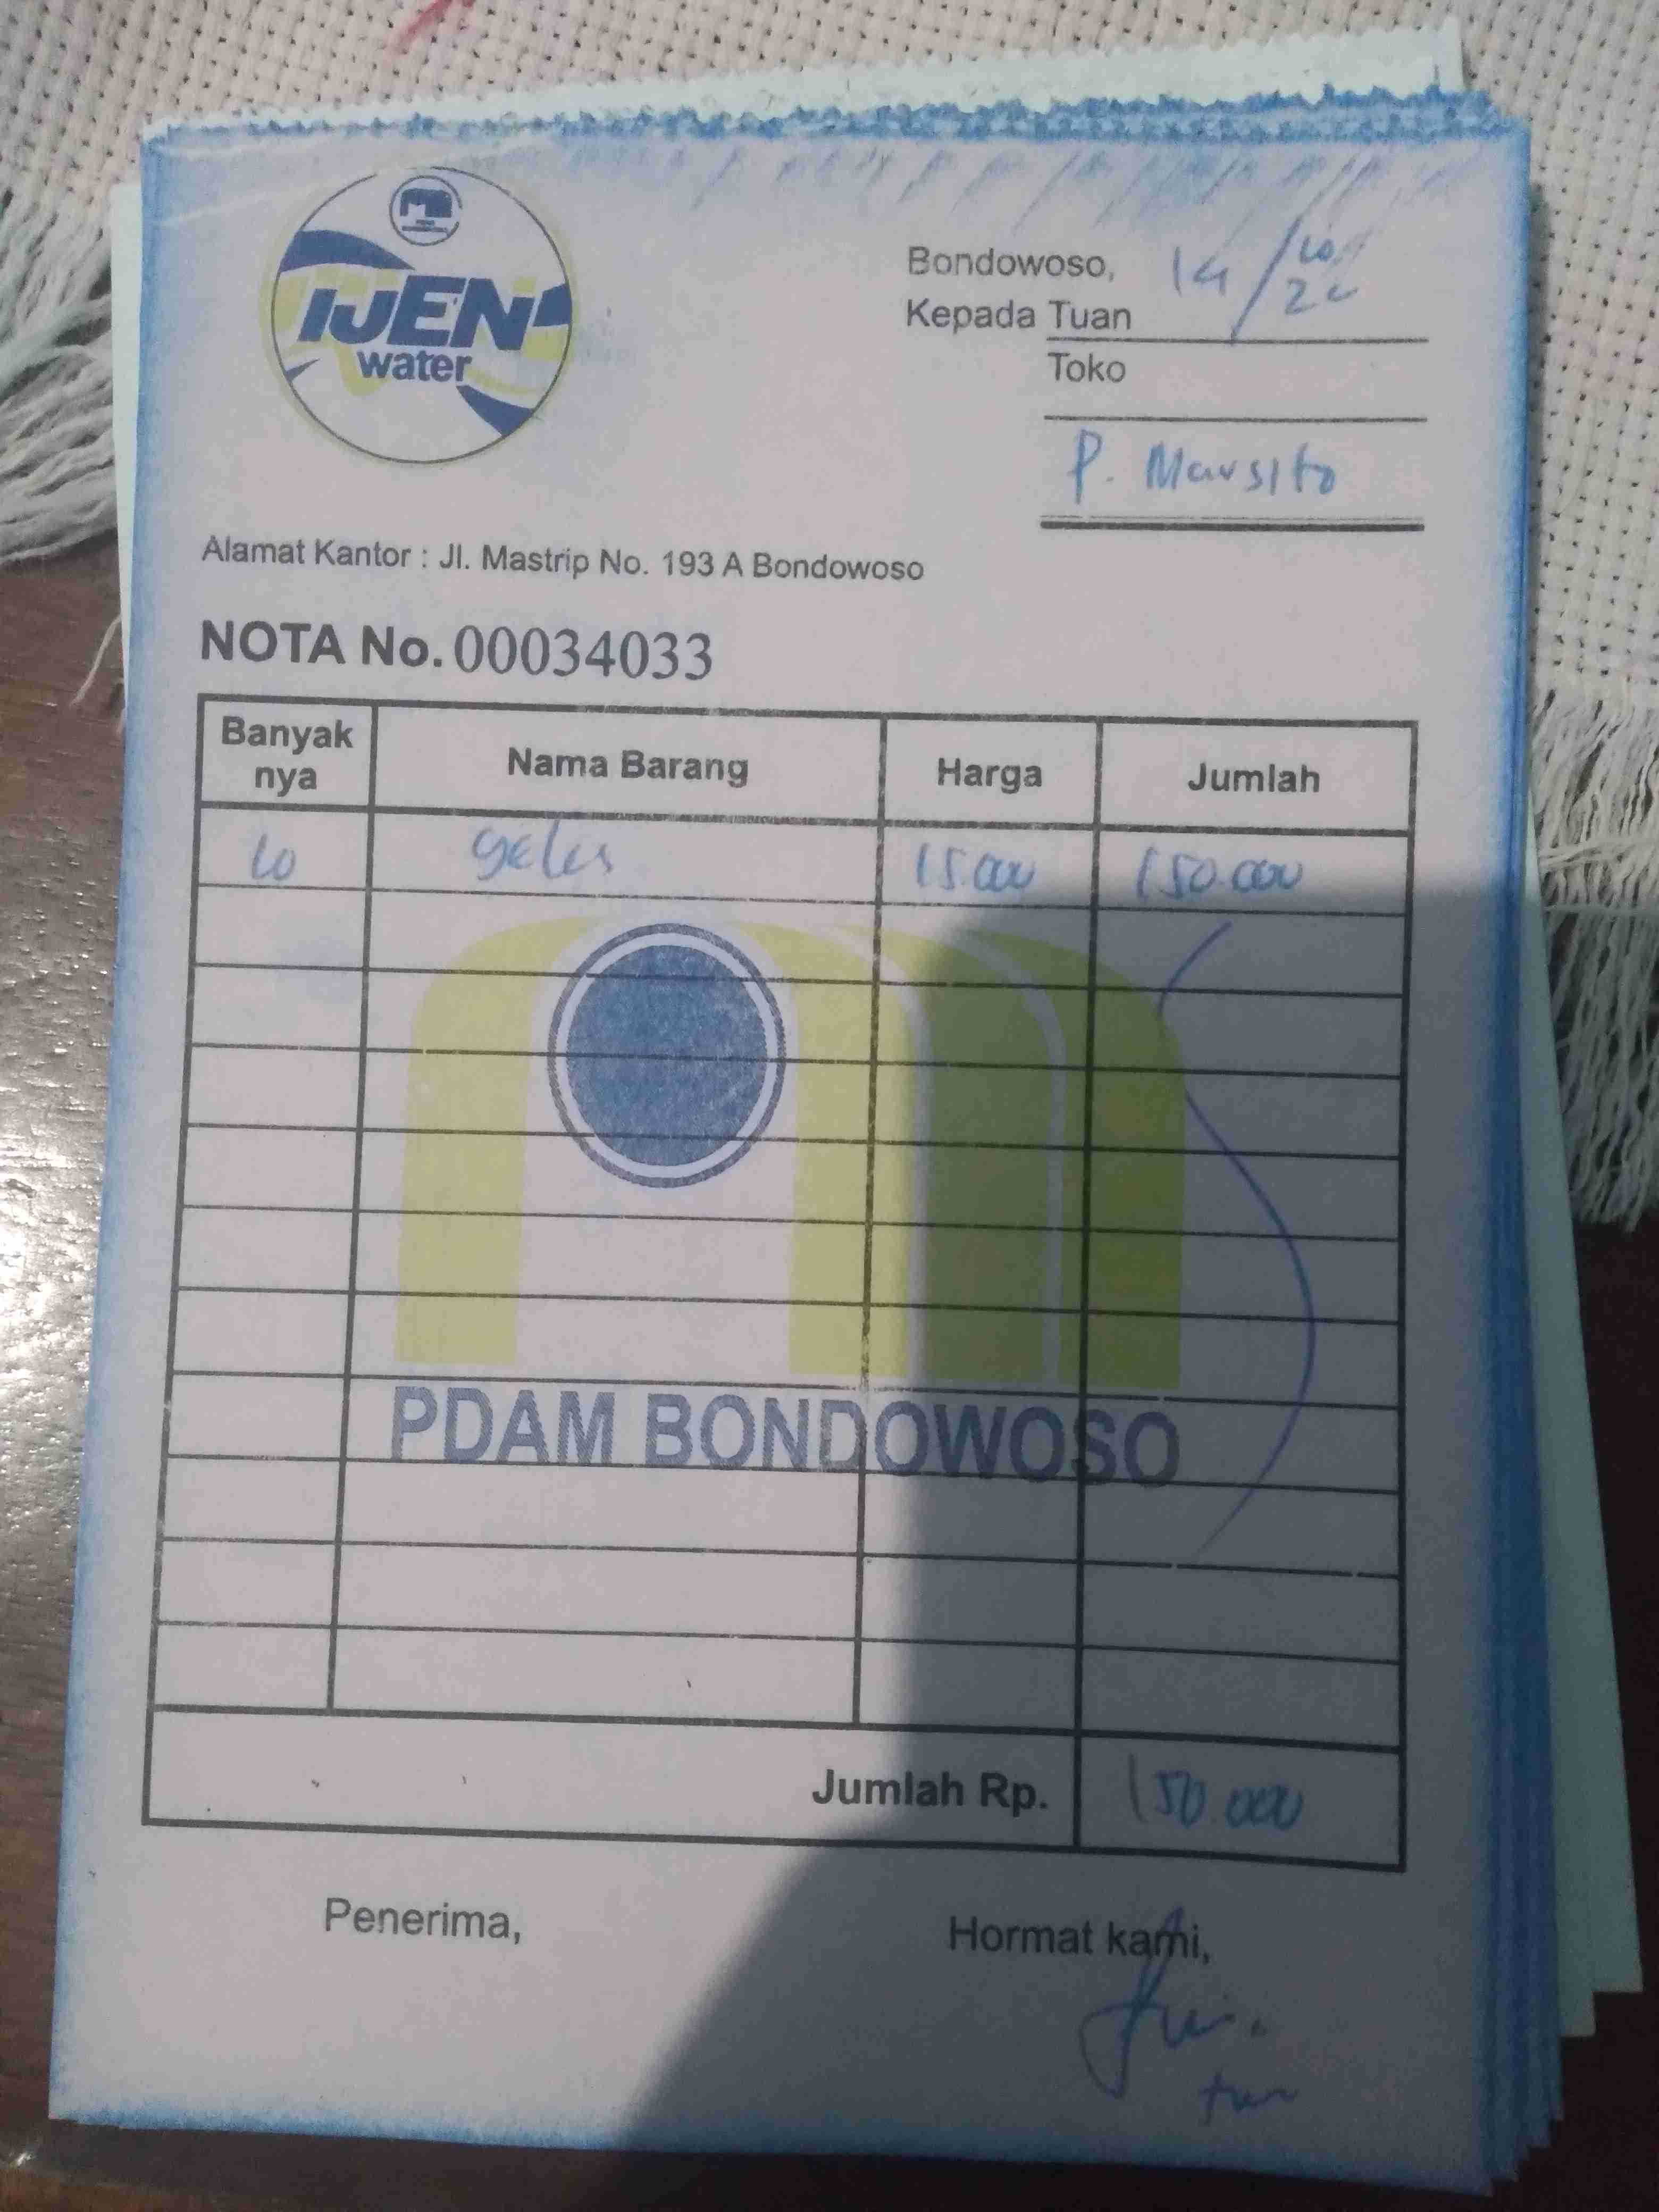 IJEN
water
Bondowoso, 14/10
Kepada Tuan
Toko
P. Marsito
Alamat Kantor : Jl. Mastrip No. 193 A Bondowoso
NOTA No. 00034033
Banyak nya Nama Barang Harga Jumlah
10 gelas 15.000 150.000
PDAM BONDOWOSO
Jumlah Rp. 150.000
Penerima, Hormat kami,